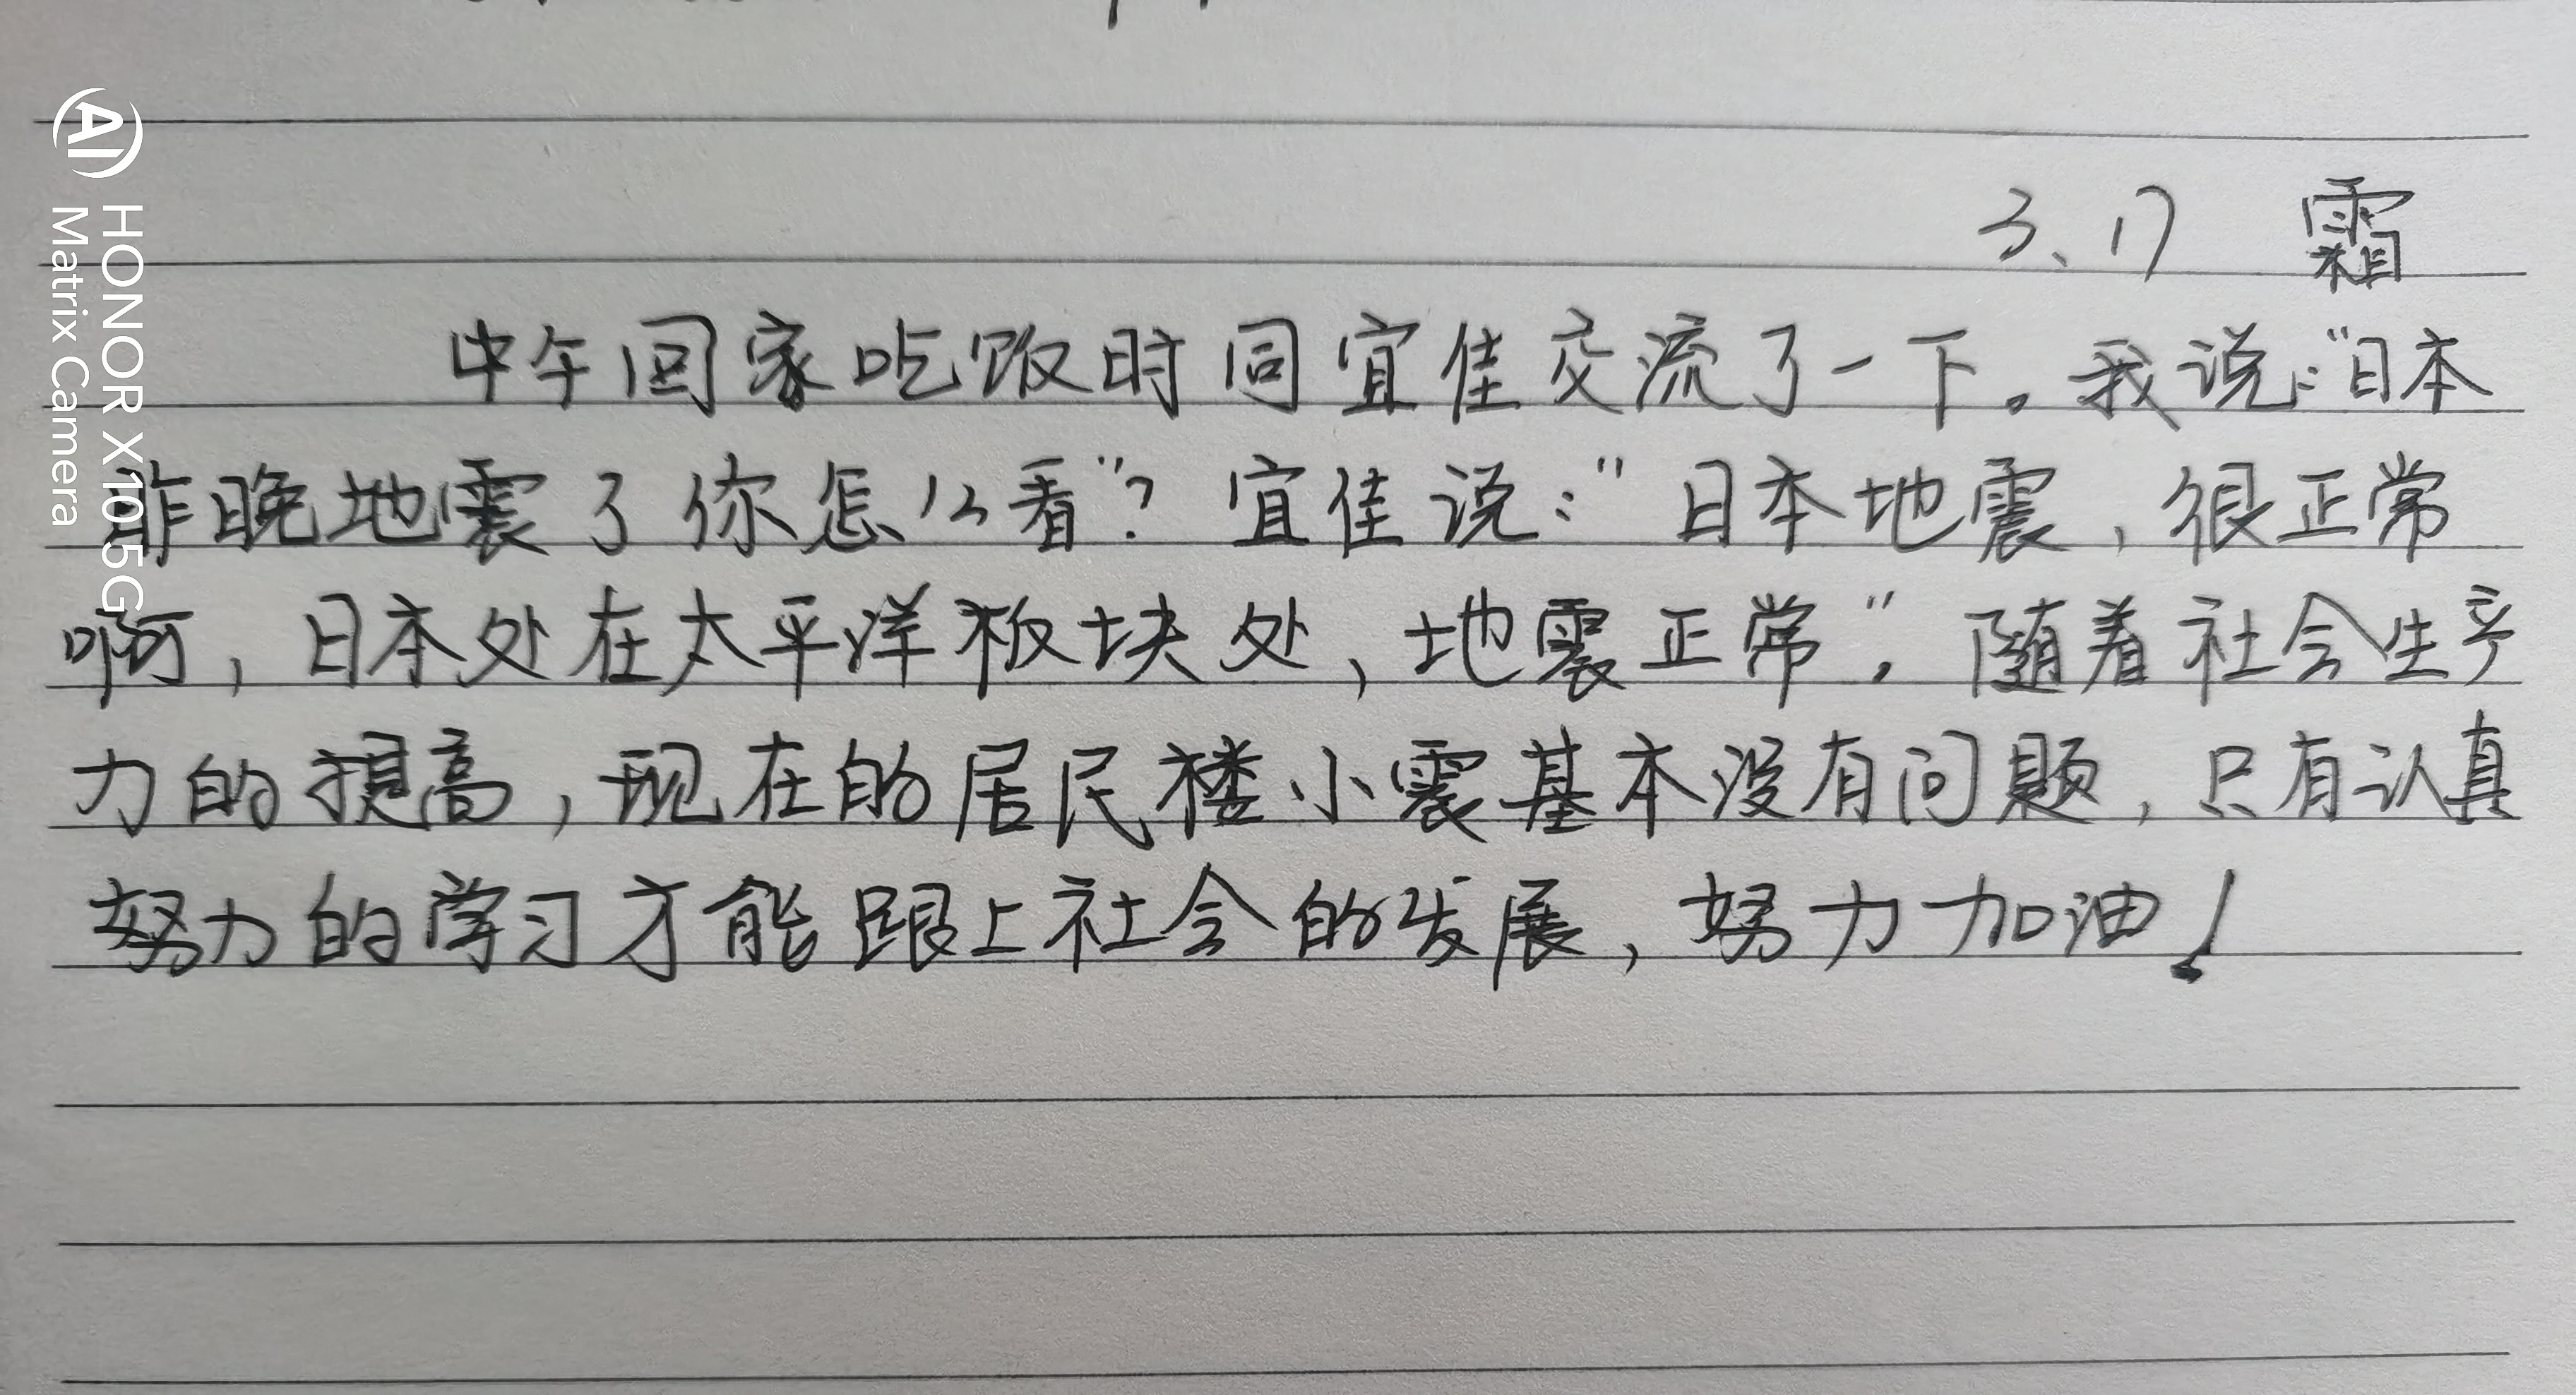 3、17 霜
中午回家吃饭时同宜佳交流了一下。我说:"日本
昨晚地震了你怎么看"?宜佳说:"日本地震,很正常
啊,日本处在太平洋板块处,地震正常"。随着社会生产
力的提高,现在的居民楼小震基本没有问题,只有认真
努力的学习才能跟上社会的发展,努力加油!
HONOR X10 5G
Matrix Camera
AI